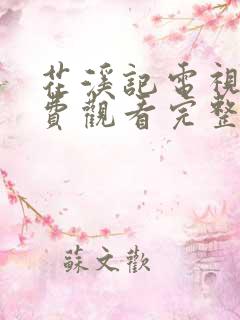 茫溪記電視
費觀看完整
蘇文歡